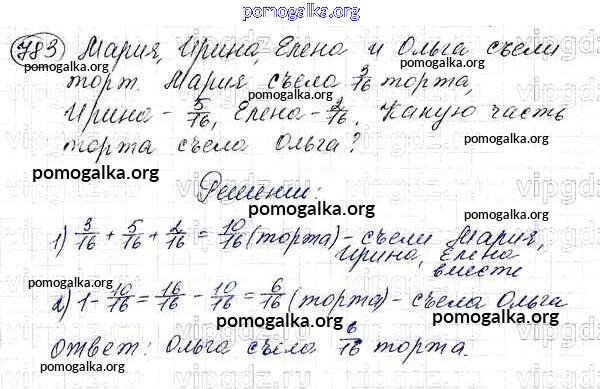 pomogalka.org
783 Мария, Ирина, Елена и Ольга съели
pomogalka.org
торт. Мария съела 3/16 торта,
Ирина - 5/16, Елена - 2/16. Какую часть
pomogalka.org
торта съела Ольга?
pomogalka.org
Решении:
pomogalka.org
1) 3/16 + 5/16 + 2/16 = 10/16 (торта) - съели Мария,
Ирина, Елена
pomogalka.org
вместе
2) 1 - 10/16 = 16/16 - 10/16 = 6/16 (торта) - съела Ольга
pomogalka.org
pomogalka.org
ответ: Ольга съела 6/16 торта.
pomogalka.org